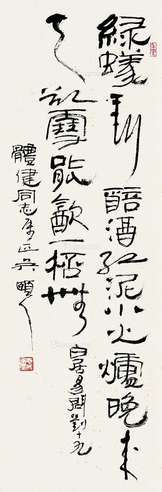 綠蟻新醅酒紅泥小火爐晚來
天欲雪能飲一杯無 白居易問劉十九
體健同志屬正吳頤人